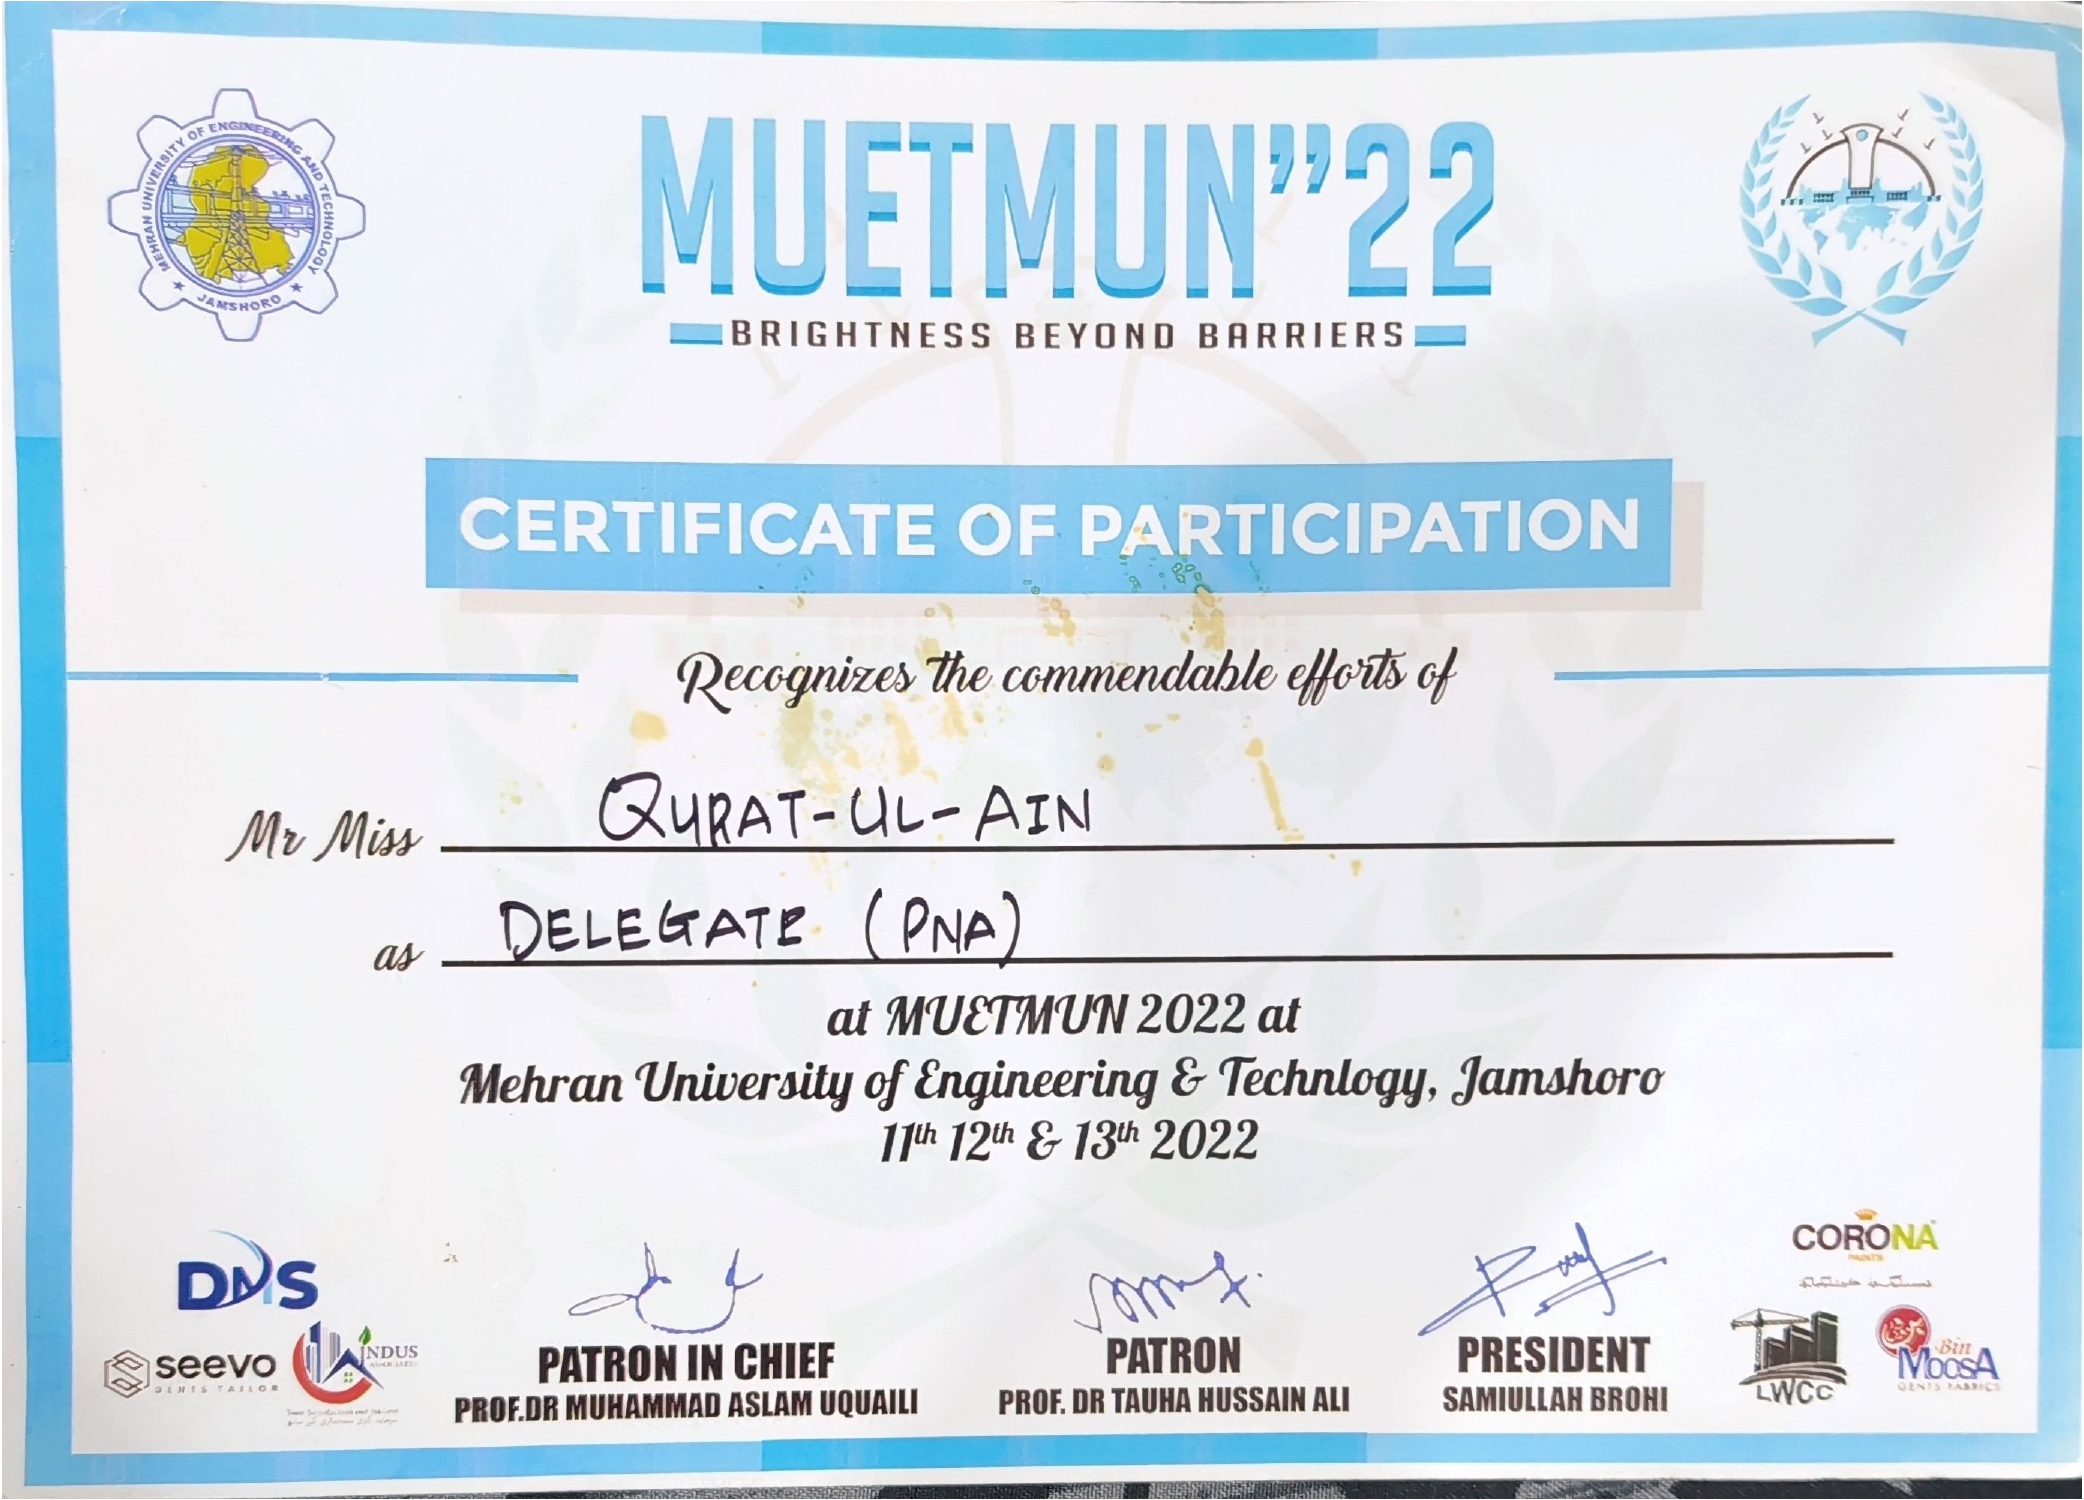 MEHRAN UNIVERSITY OF ENGINEERING AND TECHNOLOGY
★ JAMSHORO ★
MUETMUN”22
BRIGHTNESS BEYOND BARRIERS
CERTIFICATE OF PARTICIPATION
Recognizes the commendable efforts of
Mr Miss QURAT-UL-AIN
as DELEGATE (PNA)
at MUETMUN 2022 at
Mehran University of Engineering & Technlogy, Jamshoro
11th 12th & 13th 2022
DMS
seevo
GENTS TAILOR
INDUS
ASSOCIATES
PATRON IN CHIEF
PROF.DR MUHAMMAD ASLAM UQUAILI
PATRON
PROF. DR TAUHA HUSSAIN ALI
PRESIDENT
SAMIULLAH BROHI
CORONA
PAINTS
LWCC
Bin
MoosA
GENTS FABRICS